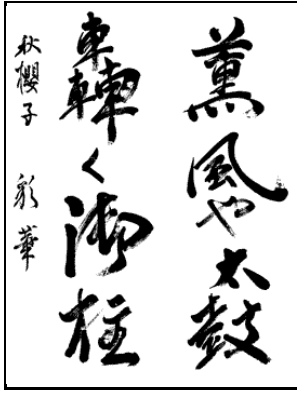 薫風や太鼓
轟く御柱
秋櫻子 彩華